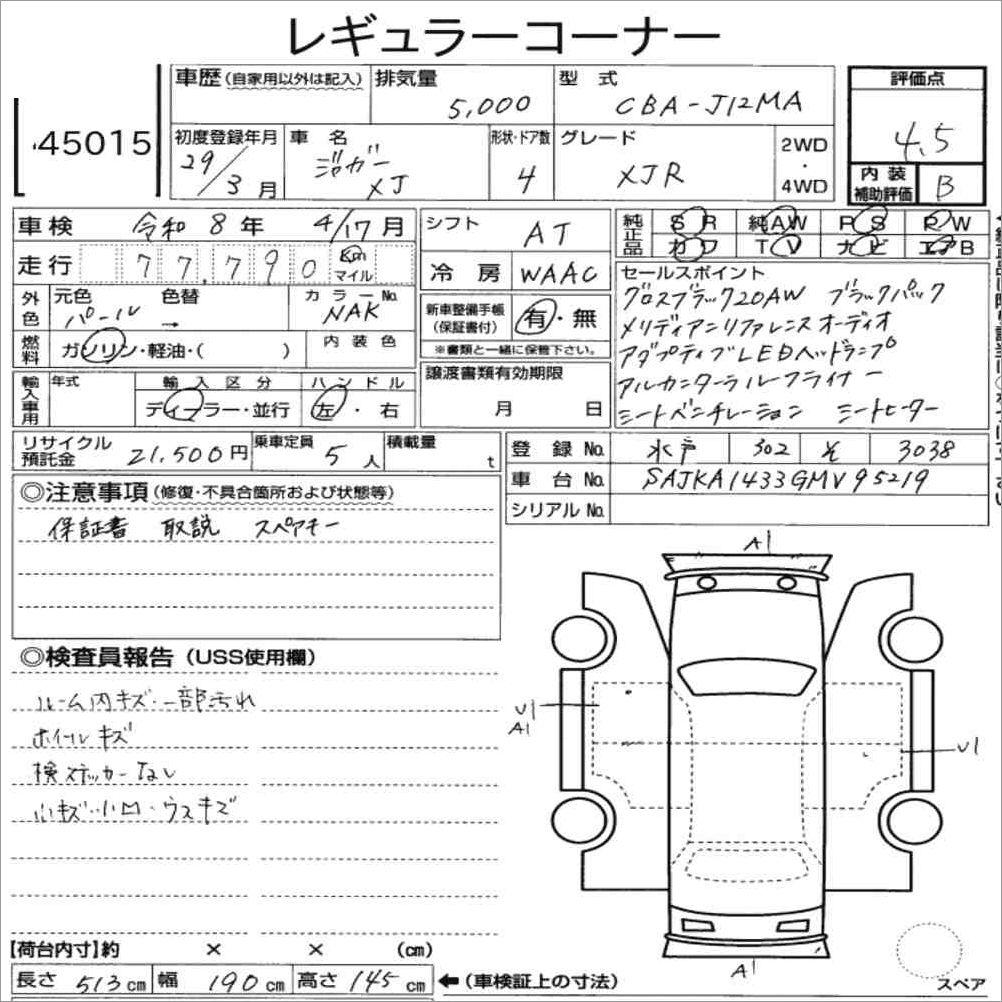 レギュラーコーナー
45015
車歴(自家用以外は記入)
排気量 5,000
型式 CBA-J12MA
評価点 4.5
初度登録年月 29/3月
車名 ジャガー XJ
形状・ドア数 4
グレード XJR
2WD・4WD
内装補助評価 B
車検 令和8年 4/17月
シフト AT
純正品 SR 純AW PS PW
カワ TV ナビ エアB
走行 77,790 Km マイル
冷房 WAAC
セールスポイント
グロスブラック20AW ブラックパック
メリディアンリファレンスオーディオ
アダプティブLEDヘッドランプ
アルカンターラルーフライナー
シートベンチレーション シートヒーター
外色 元色 パール 色替 → カラーNo. NAK
新車整備手帳(保証書付) 有・無
※書類と一緒に保管下さい。
燃料 ガソリン・軽油・( ) 内装色
譲渡書類有効期限
月 日
輸入車用 年式 輸入区分 ハンドル
ディーラー・並行 左・右
リサイクル預託金 21,500円
乗車定員 5人
積載量 t
登録No. 水戸 302 そ 3038
車台No. SAJKA1433GMV95219
シリアルNo.
◎注意事項(修復・不具合箇所および状態等)
保証書 取説 スペアキー
◎検査員報告(USS使用欄)
ルーム内キズ・一部汚れ
ホイールキズ
検ステッカーなし
小キズ・小凹・ウスキズ
A1
U1
A1
U1
A1
スペア
【荷台内寸】約 × × (cm)
長さ 513cm 幅 190cm 高さ 145cm ←(車検証上の寸法)